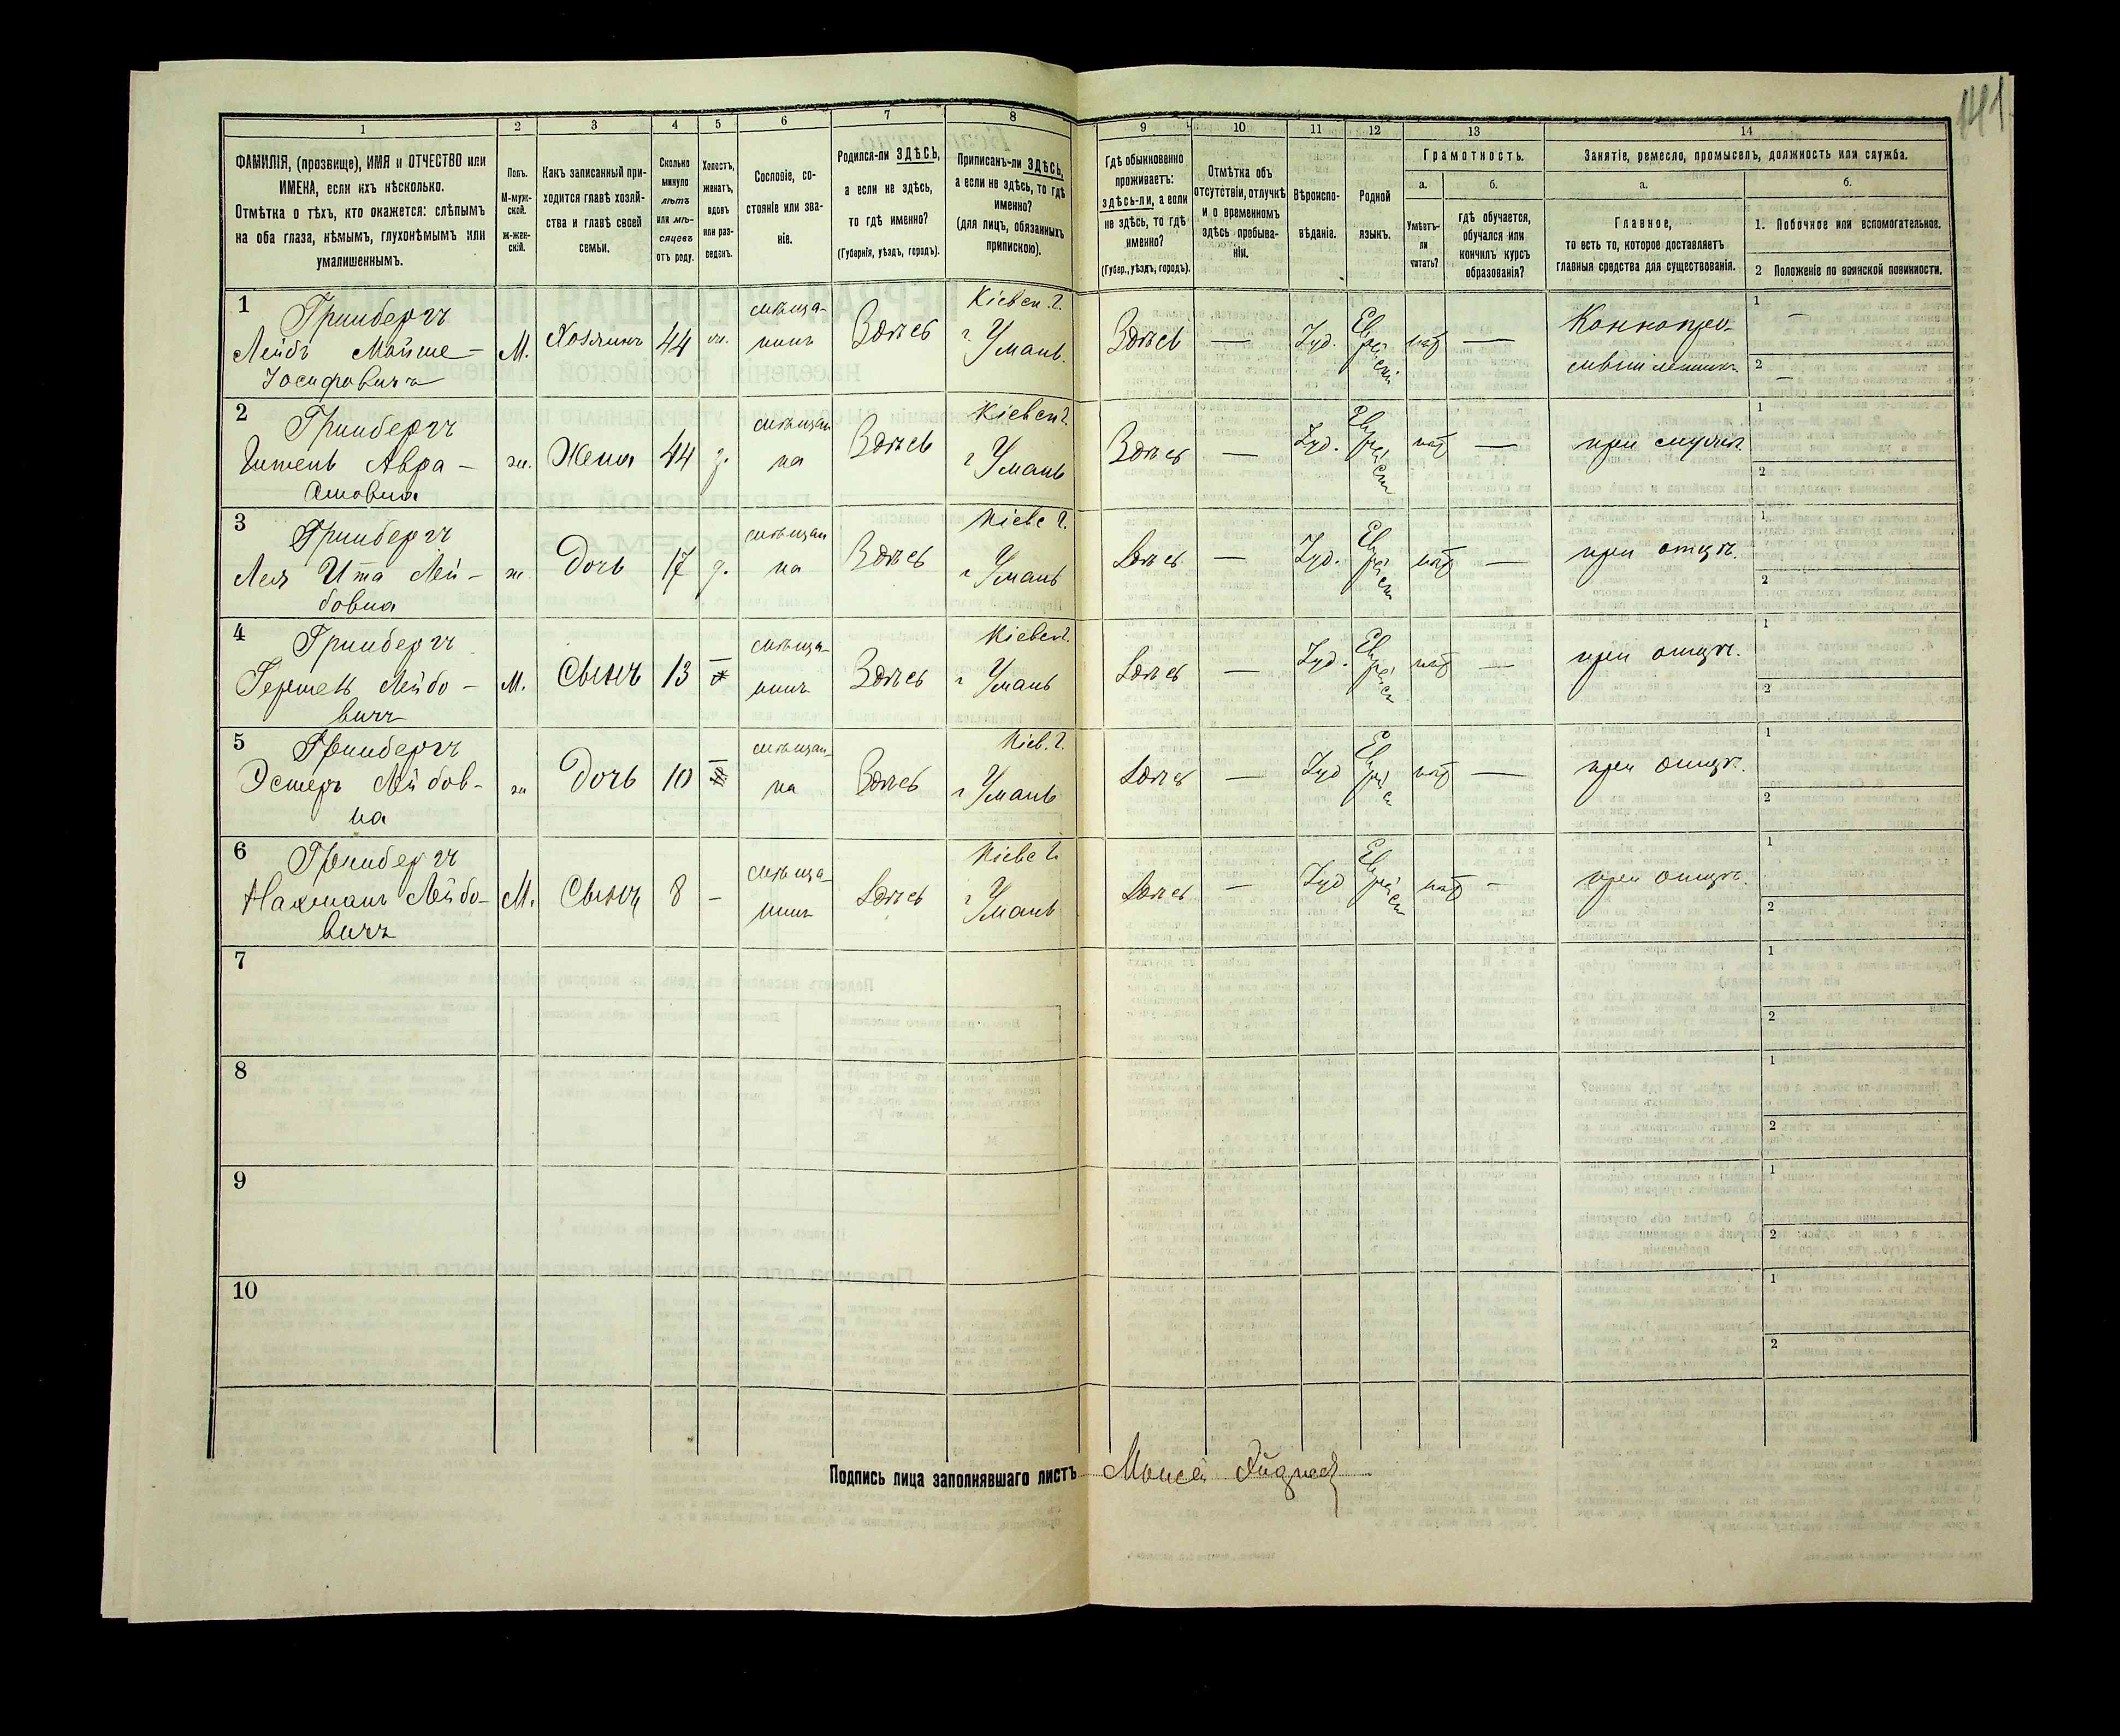 141
1
2
3
4
5
6
7
8
9
10
11
12
13
14
ФАМИЛІЯ, (прозвище), ИМЯ и ОТЧЕСТВО или
ИМЕНА, если ихъ нѣсколько.
Отмѣтка о тѣхъ, кто окажется: слѣпымъ
на оба глаза, нѣмымъ, глухонѣмымъ или
умалишеннымъ.
Полъ.
М-муж-
ской.
Ж-жен-
скій.
Какъ записанный при-
ходится главѣ хозяй-
ства и главѣ своей
семьи.
Сколько
минуло
лѣтъ
или мѣ-
сяцевъ
отъ роду.
Холостъ,
женатъ,
вдовъ
или раз-
веденъ.
Сословіе, со-
стояніе или зва-
ніе.
Родился-ли ЗДѢСЬ,
а если не здѣсь,
то гдѣ именно?
(Губернія, уѣздъ, городъ).
Приписанъ-ли ЗДѢСЬ,
а если не здѣсь, то гдѣ
именно?
(для лицъ, обязанныхъ
припискою).
Гдѣ обыкновенно
проживаетъ:
здѣсь-ли, а если
не здѣсь, то гдѣ
именно?
(Губер., уѣздъ, городъ).
Отмѣтка объ
отсутствіи, отлучкѣ
и о временномъ
здѣсь пребыва-
ніи.
Вѣроиспо-
вѣданіе.
Родной
языкъ.
Грамотность.
а.
б.
Умѣетъ-
ли
читать?
гдѣ обучается,
обучался или
кончилъ курсъ
образованія?
Занятіе, ремесло, промыселъ, должность или служба.
а.
б.
Главное,
то есть то, которое доставляетъ
главныя средства для существованія.
1. Побочное или вспомогательное.
2 Положеніе по воинской повинности.
1
Гринбергъ
Лейбъ Мойше-
Іосифовичъ
М.
Хозяинъ
44
мѣща-
нинъ
Здѣсь
Кіевск. г.
г. Умань.
Здѣсь
—
Іуд.
Еврейск.
нѣт
—
1
—
2
—
2
Гринбергъ
Авра-
мовна
ж.
Жена
44
мѣщан
ка
Здѣсь
Кіевск г.
г Умань
Здѣсь
—
Іуд.
Еврейск
нѣт
—
при мужѣ.
1
2
3
Гринбергъ
Лея Ита Лей-
бовна
ж
Дочь
17
мѣщан
ка
Здѣсь
Кіевс г.
г Умань
Здѣсь
—
Іуд.
Еврейск
нѣт
—
при отцѣ.
1
2
4
Гринбергъ
Гершель Лейбо-
вичъ
М.
Сынъ
13
—
мѣща-
нинъ
Здѣсь
Кіевск г.
г Умань
Здѣсь
—
Іуд.
Еврейск
нѣт
—
при отцѣ.
1
2
5
Гринбергъ
Эстеръ Лейбов-
на
ж
Дочь
10
—
мѣщан-
ка
Здѣсь
Кіев. г.
г Умань
Здѣсь
—
Іуд
Еврейс
нѣт
—
при отцѣ.
1
2
6
Гринбергъ
Нахманъ Лейбо-
вичъ
М.
Сынъ
8
—
мѣща-
нинъ
Здѣсь
Кіевс г.
г Умань
Здѣсь
—
Іуд
Еврейск
нѣт
-
при отцѣ.
1
2
7
1
2
8
1
2
9
1
2
10
1
2
Подпись лица заполнявшаго листъ Моисей